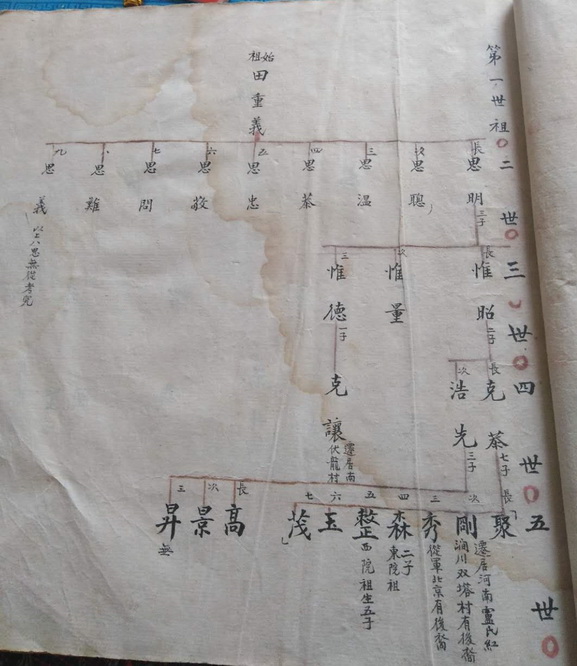 第一世祖
始祖
田重義
二世
長 思明 三子
次 思聰
三 思温
四 思恭
五 思忠
六 思敬
七 思問
八 思難
九 思義
以上八思無從考究
三世
長 惟昭 二子
次 惟量
三 惟德 一子
四世
長 克恭 七子
次 浩先 三子
克讓
遷居南
伏龍村
五世
長 聚
遷居河南盧氏紅
澗川双塔村有後裔
次 剛
三 秀
從軍北京有後裔
四 森
二子
東院祖
五 整
西院祖生五子
六 玉
七 茂
長 高
次 景
三 昇
無